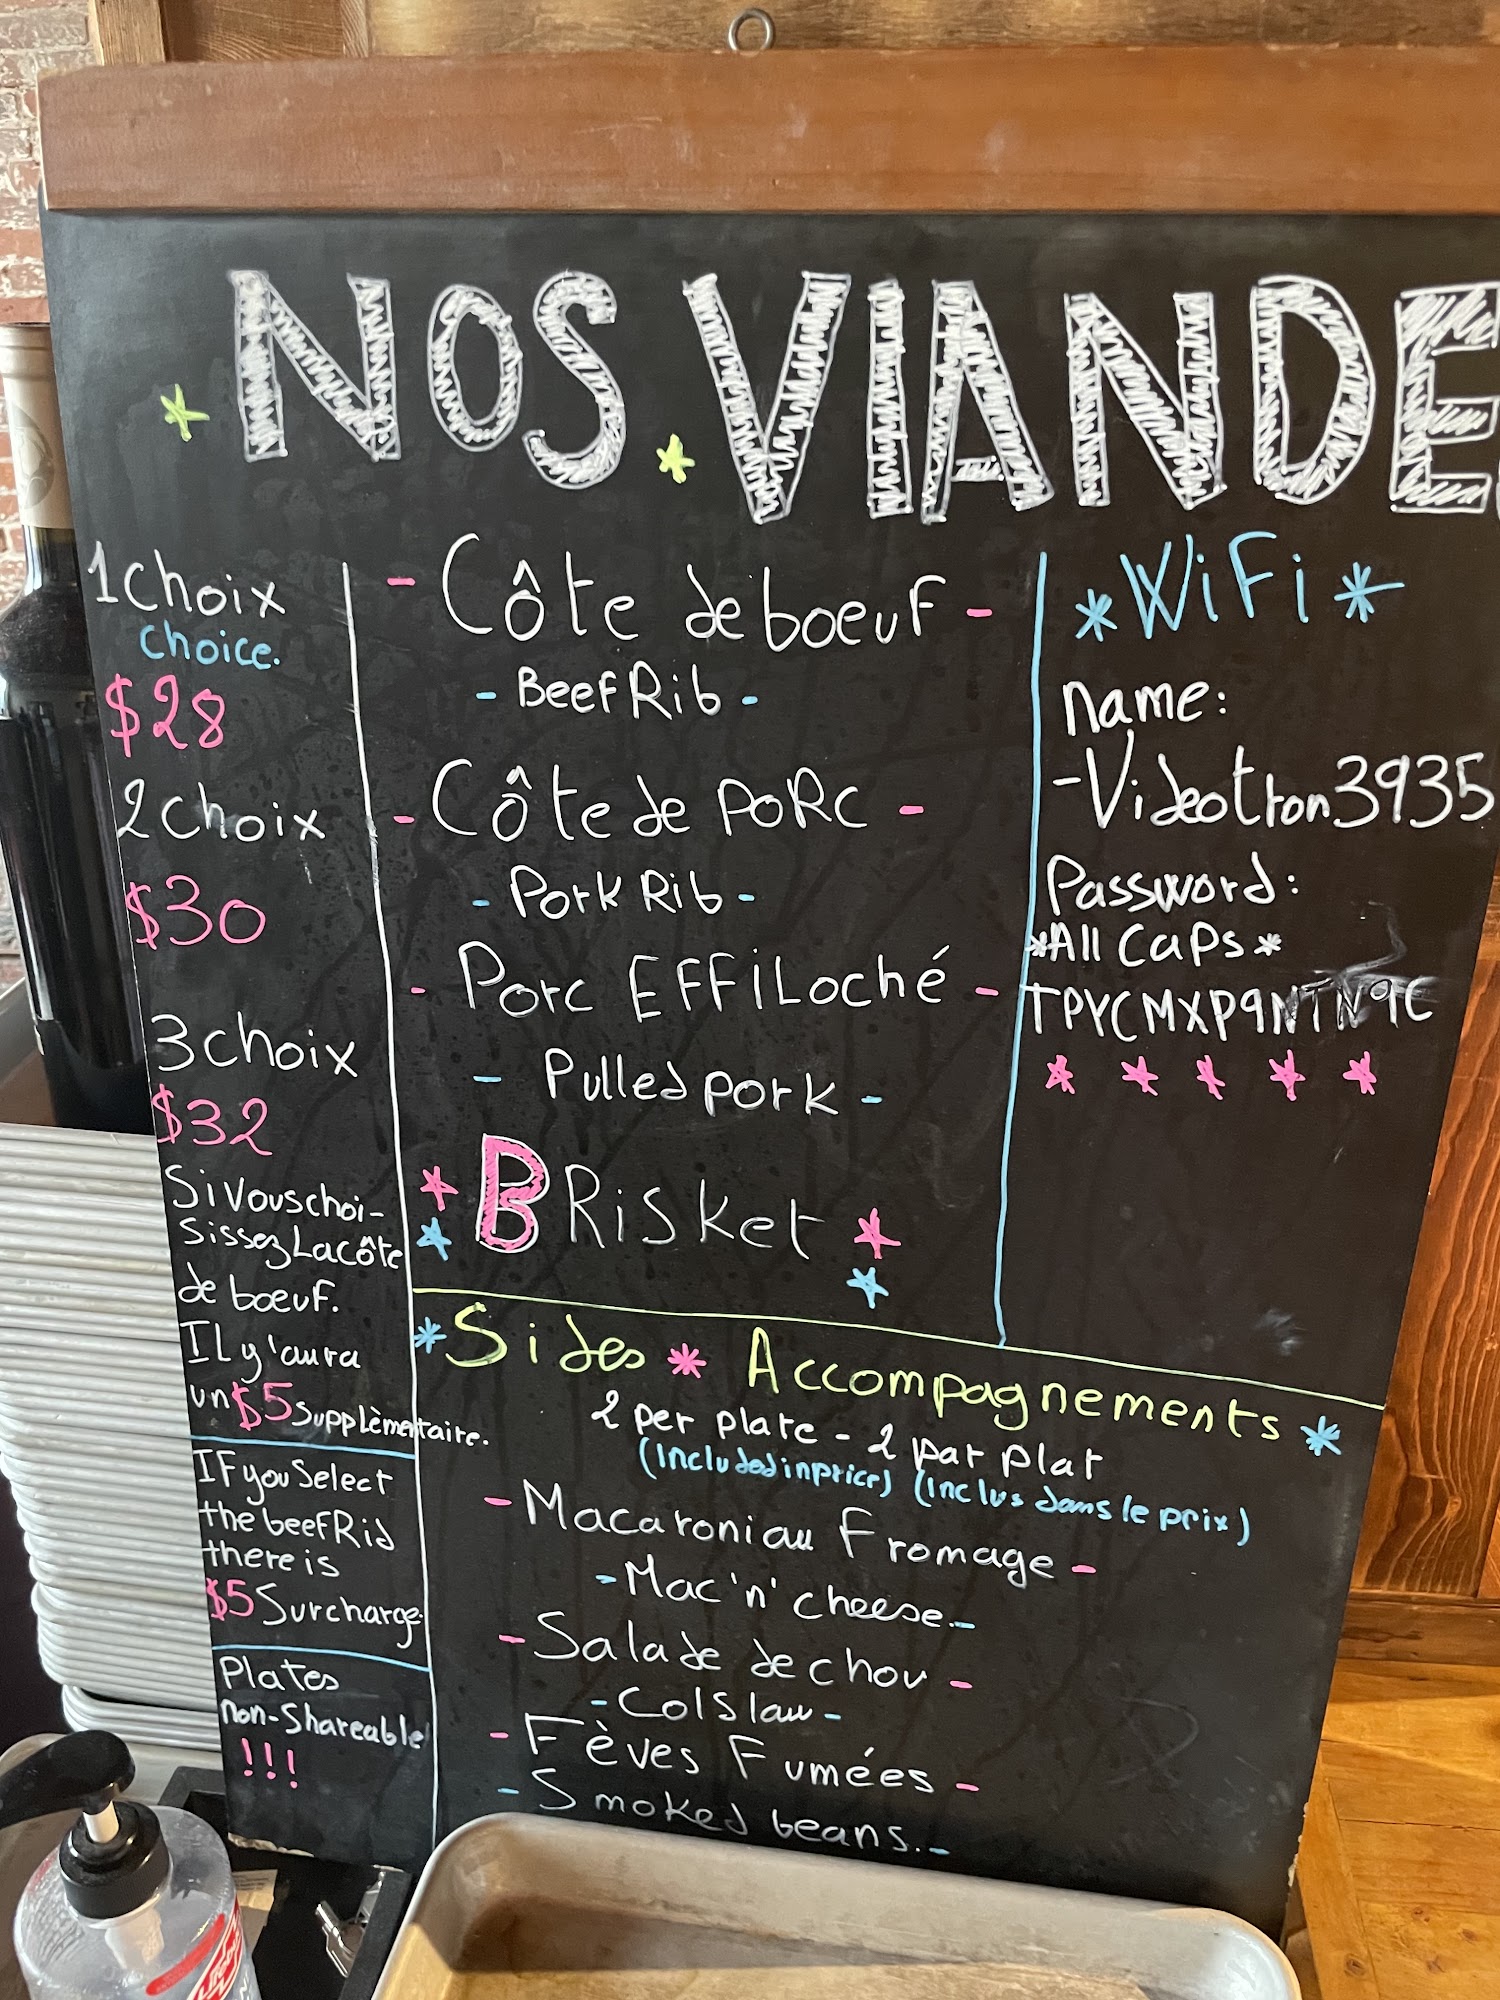 NOS VIANDE
1 choix
choice.
$28
2 choix
$30
3 choix
$32
Si vous choi-
sissez La côte
de boeuf.
IL y'aura
un $5 supplèmentaire.
IF you Select
the beef Rib
there is
$5 Surcharge.
Plates
non-Shareable
!!!
- Côte de boeuf -
- Beef Rib -
- Côte de PoRc -
- Pork Rib -
- Porc EFFiLoché -
- Pulled pork -
BRisket
* WiFi *
name:
- Videotron3935
Password:
*All Caps*
* Sides * Accompagnements *
2 per plate - 2 par plat
(Included in price) (Inclus dans le prix)
- Macaroni au Fromage -
- Mac'n'cheese. -
- Salade de chou -
- Colslaw -
- Fèves Fumées -
- Smoked beans. -